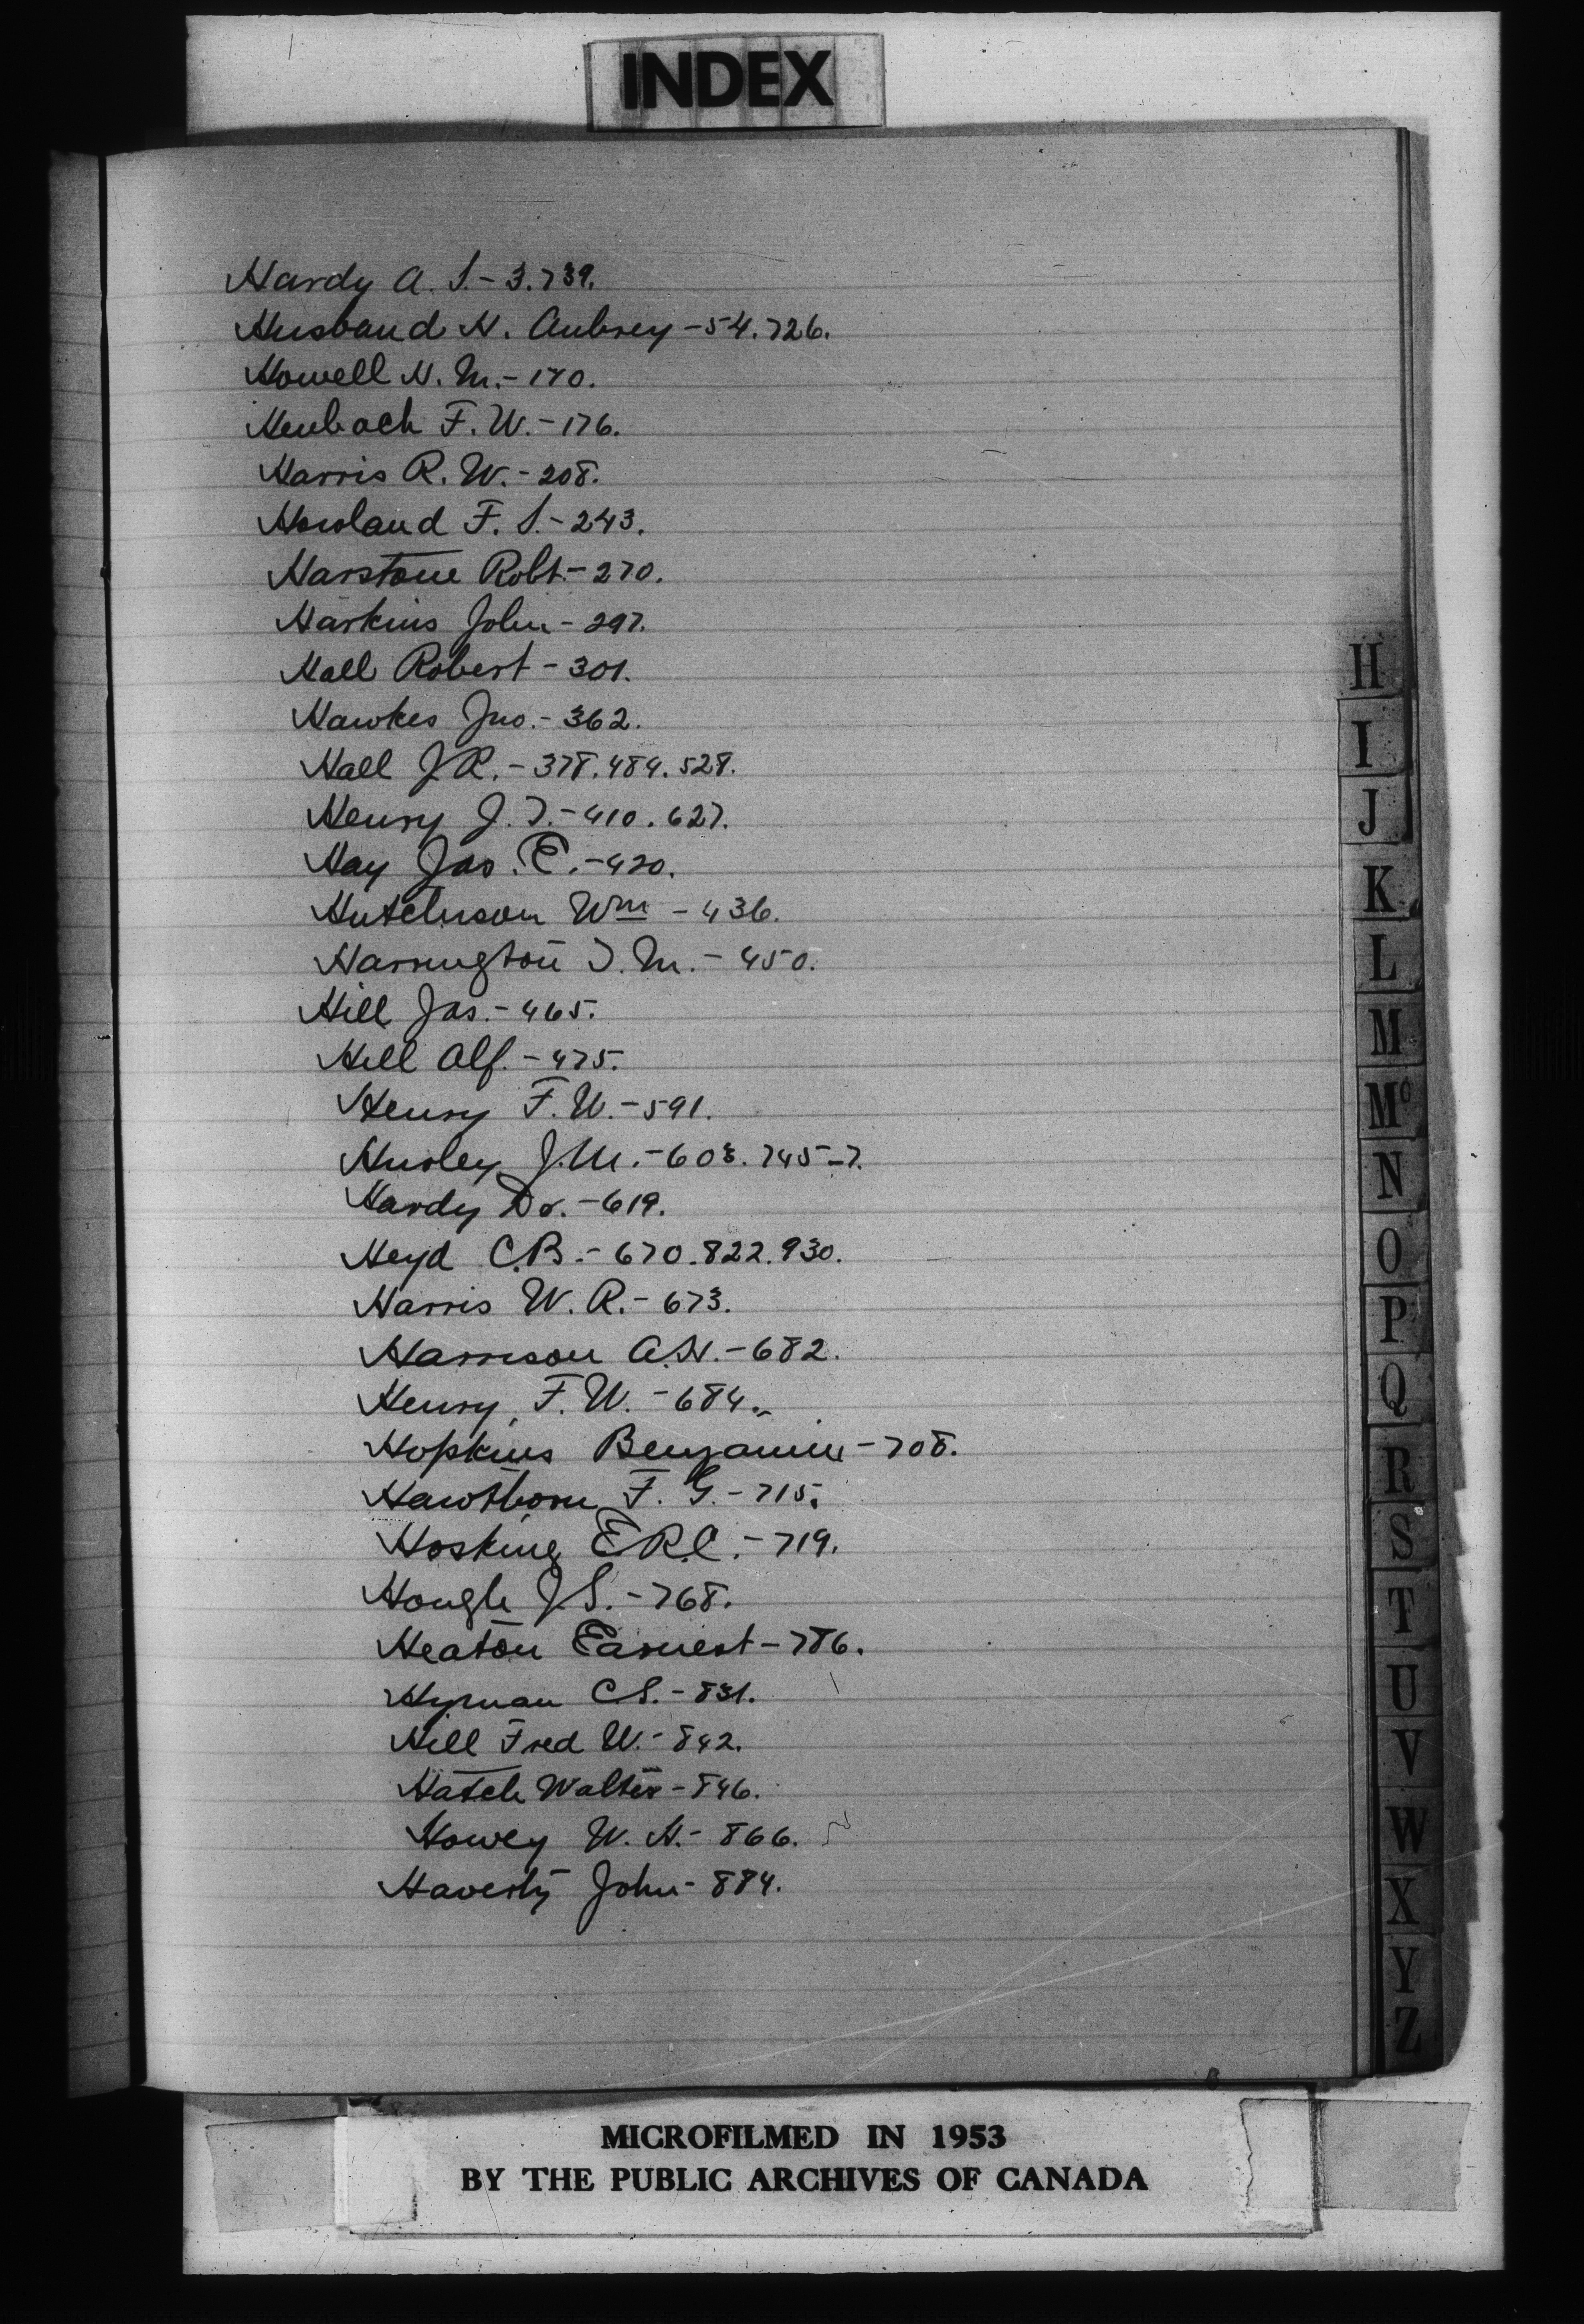 INDEX
Hardy A. S. - 3.739.
Husband H. Aubrey - 54.726.
Howell H. M. - 170.
Heubach F. W. - 176.
Harris R. W. - 208.
Howland F. S. - 243.
Harstone Robt - 270.
Harkins John - 297.
Hall Robert - 301.
Hawkes Jno. - 362.
Hall J.R. - 378.484.528.
Henry J. T. - 410.627.
Hay Jas. E. - 420.
Hutchison Wm - 436.
Harrington T. M. - 450.
Hill Jas. - 465.
Hill Alf. - 475.
Henry F. W. - 591.
Hurley J.M. - 603.745-7.
Hardy Dr. - 619.
Heyd C.B. - 670.822.930.
Harris W. R. - 673.
Harrison A.H. - 682.
Henry, F. W. - 684.
Hopkins Benjamin - 708.
Hawthorn F. G. - 715.
Hosking E.R.C. - 719.
Hough J.S. - 768.
Heaton Earnest - 786.
Hyman C S. - 831.
Hill Fred W. - 842.
Hatch Walter - 846.
Howey W. H. - 866.
Haverty John - 884.
H
I
J
K
L
M
Mc
N
O
P
Q
R
S
T
U
V
W
X
Y
Z
MICROFILMED IN 1953
BY THE PUBLIC ARCHIVES OF CANADA